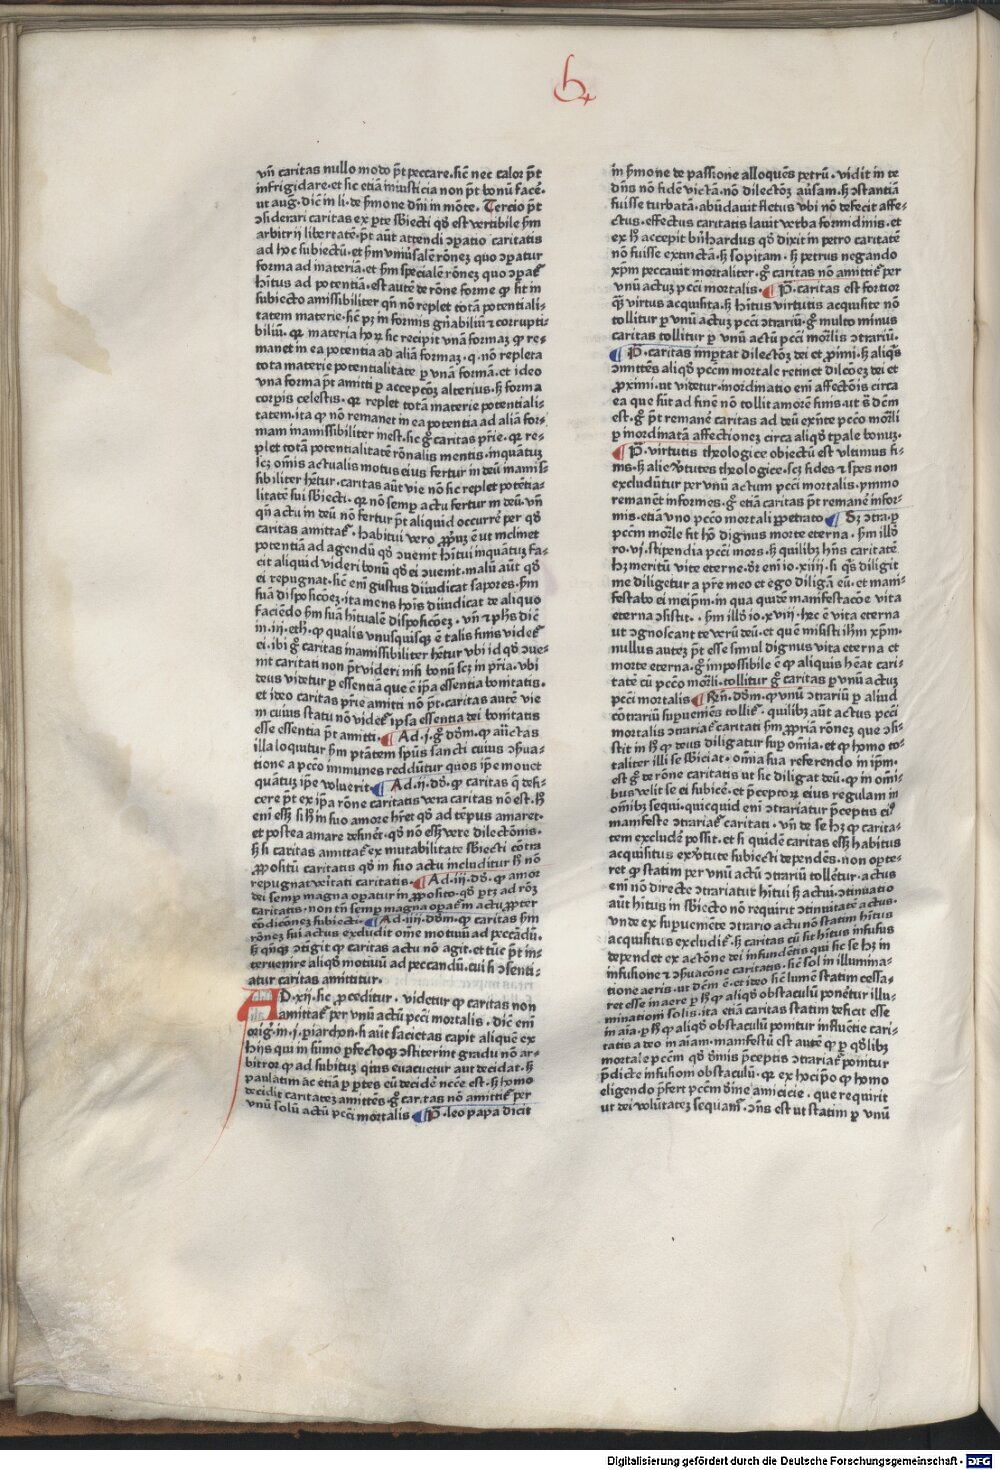 vn̄ caritas nullo modo p̄t peccare.sic̄ nec calor p̄t
infrigidare.et sic etiā iniusticia non p̄t bonū facē.
ut aug.dic̄ in li.de s̄mone dn̄i in mōte. Tercio p̄t
ↄsiderari caritas ex ꝑte sb̄iecti qd̄ est vertibile scd̄m
arbitrij libertatē.p̄t aūt attendi ↄꝑatio caritatis
ad hoc subiectū.et scd̄m vniu̇salē rōnez quo ↄꝑatur
forma ad materiā.et scd̄m specialē rōnez quo ↄꝑat᷑
hītus ad potentiā.est autē de rōne forme ꝙ sit in
subiecto amissibiliter qn̄ non replet totā potentiali-
tatem materie.sic̄ pꝫ in formis gn̄abiliū et corrupti-
biliū. qꝛ materia hoꝝ sic recipit vnā formaꝫ ꝙ re-
manet in ea potentia ad aliā formaꝫ.q. nō repleta
tota materie potentialitate ꝑ vnā formā.et ideo
vna forma p̄t amitti ꝑ accepcōeꝫ alterius.sꝫ forma
corꝑis celestis.qꝛ replet totā materie potentiali-
tatem.ita ꝙ nō remanet in ea potentia ad aliā for-
mam inamissibiliter inest.sic g̊ caritas pr̄ie.qꝛ re-
plet totā potentialitatē rōnalis mentis.inquātuꝫ
scꝫ om̄is actualis motus eius fertur in deū inamis-
sibiliter hētur.caritas aūt vie nō sic replet potētia-
litatē sui sb̄iecti.qꝛ nō semꝑ actu fertur in deū.vn̄
qn̄ actu in deū nō fertur p̄t aliquid occurrē per qd̄
caritas amittat᷑. habitui vero ꝓpiuꝫ ē ut inclinet
potentiā ad agendū qd̄ ↄuenit hītui inquātuꝫ fa-
cit aliquid videri bonū qd̄ ei ↄuenit.malū aūt qd̄
ei repugnat.sic̄ eni gustus diiudicat sapores.scd̄m
suā disposicōeꝫ.ita mens hoīs diiudicat de aliquo
faciēdo scd̄m suā hītualē disposicōeꝫ. vn̄ et ph̄s dic̄
in.iii.eth.ꝙ qualis vnusquisqꝫ ē talis finis videt᷑
ei.ibi g̊ caritas inamissibiliter hētur vbi id qd̄ ↄue-
nit caritati non p̄t videri nisi bonū scꝫ in pr̄ia.vbi
deus videtur ꝑ essentiā que ē ip̄a essentia bonitatis.
et ideo caritas pr̄ie amitti nō p̄t.caritas autē vie
in cuius statu nō videt᷑ ipsa essentia dei bonitatis
esse essentia p̄t amitti. Ad.j.g̊ dd̄m.ꝙ auc̄tas
illa loquitur scd̄m ptātem spūs sancti cuius ↄserua-
tione a pctō immunes reddūtur quos ip̄e mouet
quātuꝫ ip̄e voluerit. Ad.ii.dd̄.ꝙ caritas q̄ defi-
cere p̄t ex ip̄a rōne caritatis vera caritas nō est.hoc
eni esꝫ si hoc in suo amore hr̄et qd̄ ad tēpus amaret.
et postea amare desinēt.qd̄ nō esꝫ vere dilectōnis.
sꝫ si caritas amittat᷑ ex mutabilitate sb̄iecti cōtra
ꝓpositū caritatis qd̄ in suo actu includitur hoc nō
repugnat vēitati caritatis. Ad.iii.dd̄.ꝙ amor
dei semꝑ magna oꝑatur in ꝓposito.qd̄ ꝑtꝫ ad rōeꝫ
caritatis.non tn̄ semꝑ magna oꝑat᷑ in actu ꝓpter
cōdicōneꝫ subiecti. Ad.iiii.dd̄m.ꝙ caritas scd̄m
rōneꝫ sui actus excludit om̄e motiuū ad peccādū.
sꝫ qn̄qꝫ ↄtigit ꝙ caritas actu nō agit.et tūc p̄t in-
teruenire aliqd̄ motiuū ad peccandū.cui si ↄsenti-
atur caritas amittitur.
AD.xij.sic ꝓceditur. videtur ꝙ caritas non
amittat᷑ per vnū actū pcc̄i mortalis.dic̄ eni
orig̅.in.j.ꝑiarchon.si aūt sacictas capit aliquē ex
hijs qui in sumo ꝑfectoqꝫ ↄstiterint gradu nō ar-
bitror ꝙ ad subituꝫ q̇uis euacuetur aut decidat.sꝫ
paulatim ac etiā ꝑ ꝑtes eū decidē neccē est.sꝫ homo
decidit caritateꝫ amittēs.g̊ caritas nō amittit᷑ per
vnū solū actū pcc̄i mortalis P̄. leo papa dicit
in s̄mone de passione alloquēs petrū.vidit in te
dn̄s nō fidē victā.nō dilectōeꝫ au̇sam.sꝫ ↄstantiā
fuisse turbatā.abūdauit fletus vbi nō defecit affe-
ctus.effectus caritatis lauit verba formidinis.et
ex hoc accepit bn̄hardus qd̄ dixit in petro caritatē
nō fuisse extinctā.sꝫ sopitam. sꝫ petrus negando
xp̄m peccauit mortaliter.g̊ caritas nō amittit᷑ per
vnū actuꝫ pcc̄i mortalis. P̄. caritas est fortior
qꝫ virtus acquisita.sꝫ hītus virtutis acquisite nō
tollitur ꝑ vnū actuꝫ pcc̄i ↄtrariū.g̊ multo minus
caritas tollitur ꝑ vnū actū pcc̄i mor̄lis ↄtrariū.
P̄.caritas importat dilectōeꝫ dei et ꝓximi.sꝫ aliqꝰ
ↄmittēs aliqd̄ pccm̄ mortale retinet dilcōeꝫ dei et
ꝓximi.ut videtur.inordinatio eni affectōis circa
ea que sūt ad finē nō tollit amorē finis.ut s̄ dēm
est.g̊ p̄t remanē caritas ad deū exn̄te pccō mor̄li
ꝑ inordinatā affectioneꝫ circa aliqd̄ tp̄ale bonuꝫ.
P̄. virtutis theologice obiectū est vltimus fi-
nis.sꝫ alie v̇tutes theologice.scꝫ fides et spes non
excludūtur per vnū actum pcc̄i mortalis.ymmo
remanēt informes.g̊ etiā caritas p̄t remanē infor-
mis.etiā vno pccō mortali ꝑpetrato Sꝫ ↄtra.ꝑ
pccm̄ mor̄le fit hō dignus morte eterna. scd̄m illd̄
ro.vj.stipendia pcc̄i mors.sꝫ quilibꝫ hn̄s caritatē
hꝫ meritū vite eterne.dr̄ eni io.xiiii.si qꝰ diligit
me diligetur a pr̄e meo et ego diligā eū.et mani-
festabo ei meip̄m.in qua quidē manifestacōe vita
eterna ↄsistit. . scd̄m illd̄ io.xviii.hec ē vita eterna
ut ↄgnoscant te verū deū.et quē misisti ih̄m xp̄m.
nullus auteꝫ p̄t esse simul dignus vita eterna et
morte eterna.g̊ impossibile ē ꝙ aliquis hēat cari-
tatē cū pccō mor̄li.tollitur g̊ caritas ꝑ vnū actuꝫ
pcc̄i mortalis Rn̄. dd̄m.ꝙ vnū ↄtrariū ꝑ aliud
cōtrariū suꝑueniēs tollit᷑. quilibꝫ aūt actus pcc̄i
mortalis ↄtrariat᷑ caritati scd̄m ꝓpriā rōneꝫ que ↄsi-
stit in hoc ꝙ deus diligatur suꝑ om̄ia.et ꝙ homo to-
taliter illi se sb̄iciat.om̄ia sua referendo in ip̄m.
est g̊ de rōne caritatis ut sic diligat deū.ꝙ in om̄i-
bus velit se ei subicē.et p̄ceptoꝝ eius regulam in
om̄ibꝫ sequi.quicquid eni ↄtrariatur p̄ceptis eiꝰ
manifeste ↄtrariat᷑ caritati. vn̄ de se hꝫ ꝙ carita-
tem excludē possit.et si quidē caritas esꝫ habitus
acquisitus ex v̇tute subiecti dependēs.non oꝑte-
ret ꝙ statim per vnū actū ↄtrariū tollētur.actus
eni nō directe ↄtrariatur hītui sꝫ actui.ↄtinuatio
aūt hītus in sb̄iecto nō requirit ↄtinuitatē actus.
vnde ex suꝑueniēte ↄtrario actu nō statim hītus
acquisitus excludit᷑.sꝫ caritas cū sit hītus infusus
dependet ex actōne dei infundētis qui sic se hꝫ in
infusione et ↄseruacōne caritatis.sic̄ sol in illumina-
tione aeris.ut dēm ē.et ideo sic̄ lumē statim cessa-
ret esse in aere ꝑ hoc ꝙ aliqd̄ obstaculū ponētur illu-
minationi solis.ita etiā caritas statim deficit esse
in aīa.ꝑ hoc ꝙ aliqd̄ obstaculū ponitur influētie cari-
tatis a deo in aīam.manifestū est autē ꝙ ꝑ qd̄libꝫ
mortale pccm̄ qd̄ diuinis p̄ceptis ↄtrariat᷑ ponitur
p̄dicte infusioni obstaculū.qꝛ ex hoc ip̄o ꝙ homo
eligendo p̄fert pccm̄ diuine amicicie.que requirit
ut dei volūtateꝫ sequam᷑.ↄn̄s est ut statim ꝑ vnū
Digitalisierung gefördert durch die Deutsche Forschungsgemeinschaft - DFG